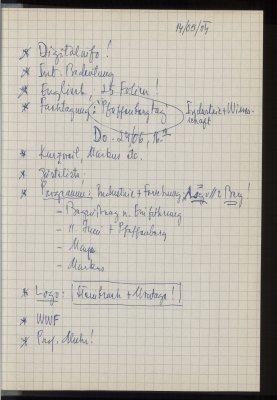 14/05/04
* Digitalinfo!
* Int. Bedeutung
* Englisch, 25 Folien!
* Fachtagung: "Pfaffenbergtag Industrie + Wissenschaft
Do. 24/06, 16.00
* Kurzweil, Markus etc.
* Gästeliste
* Programm: Industrie + Forschung,
– Begrüßung u. Einführung
– + Pfaffenberg
– Maya
– Markus
* Logo: Steinbruch + Montage!
* WWF
* Prof.